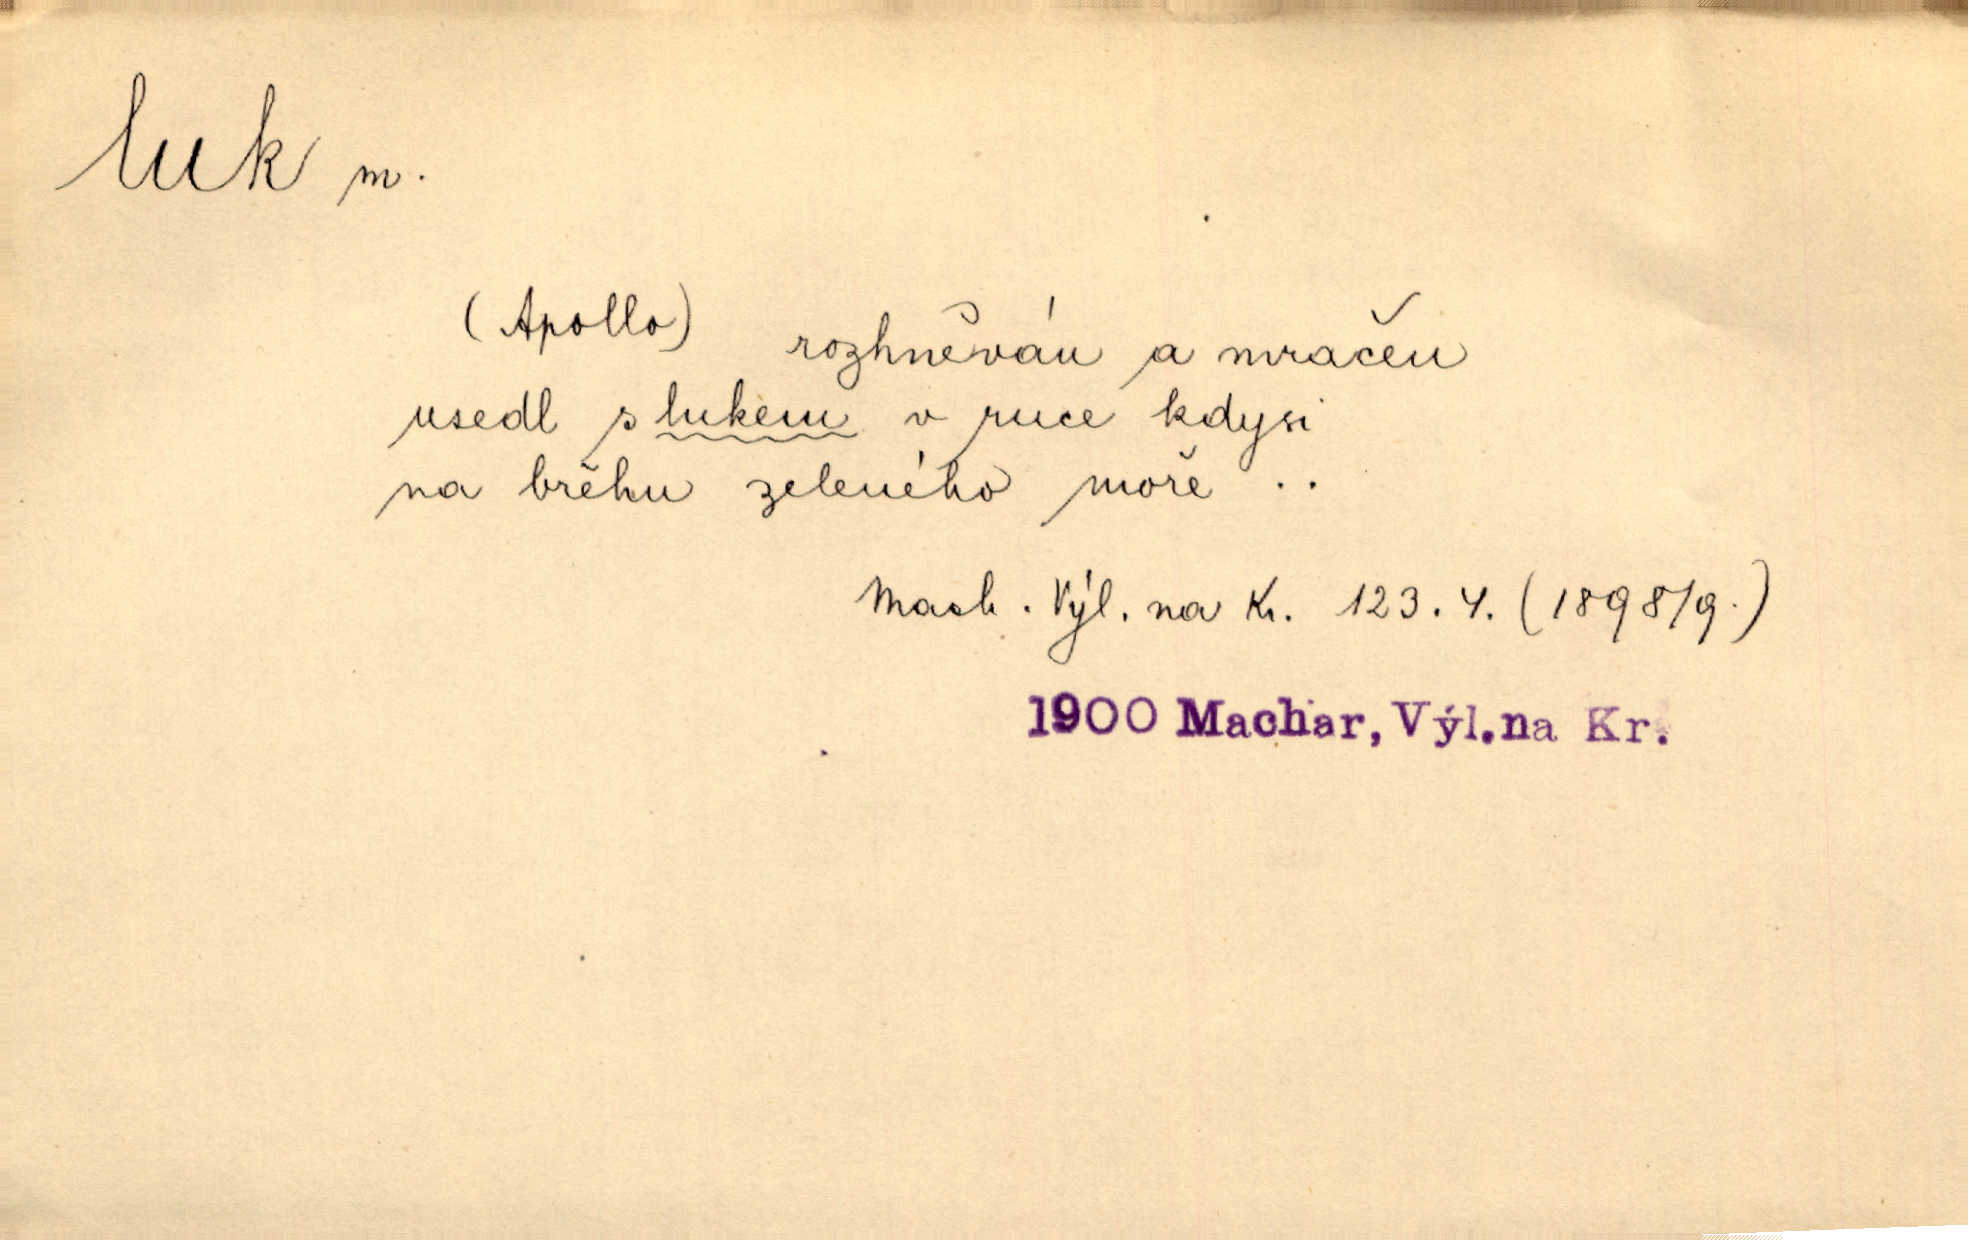 luk m.
(Apollo) rozhněván a mračen
usedl s lukem v ruce kdysi
na břehu zeleného moře ..
Mach. Výl. na Kr. 123. 4. (1898/9.)
1900 Machar, Výl.na Kr.